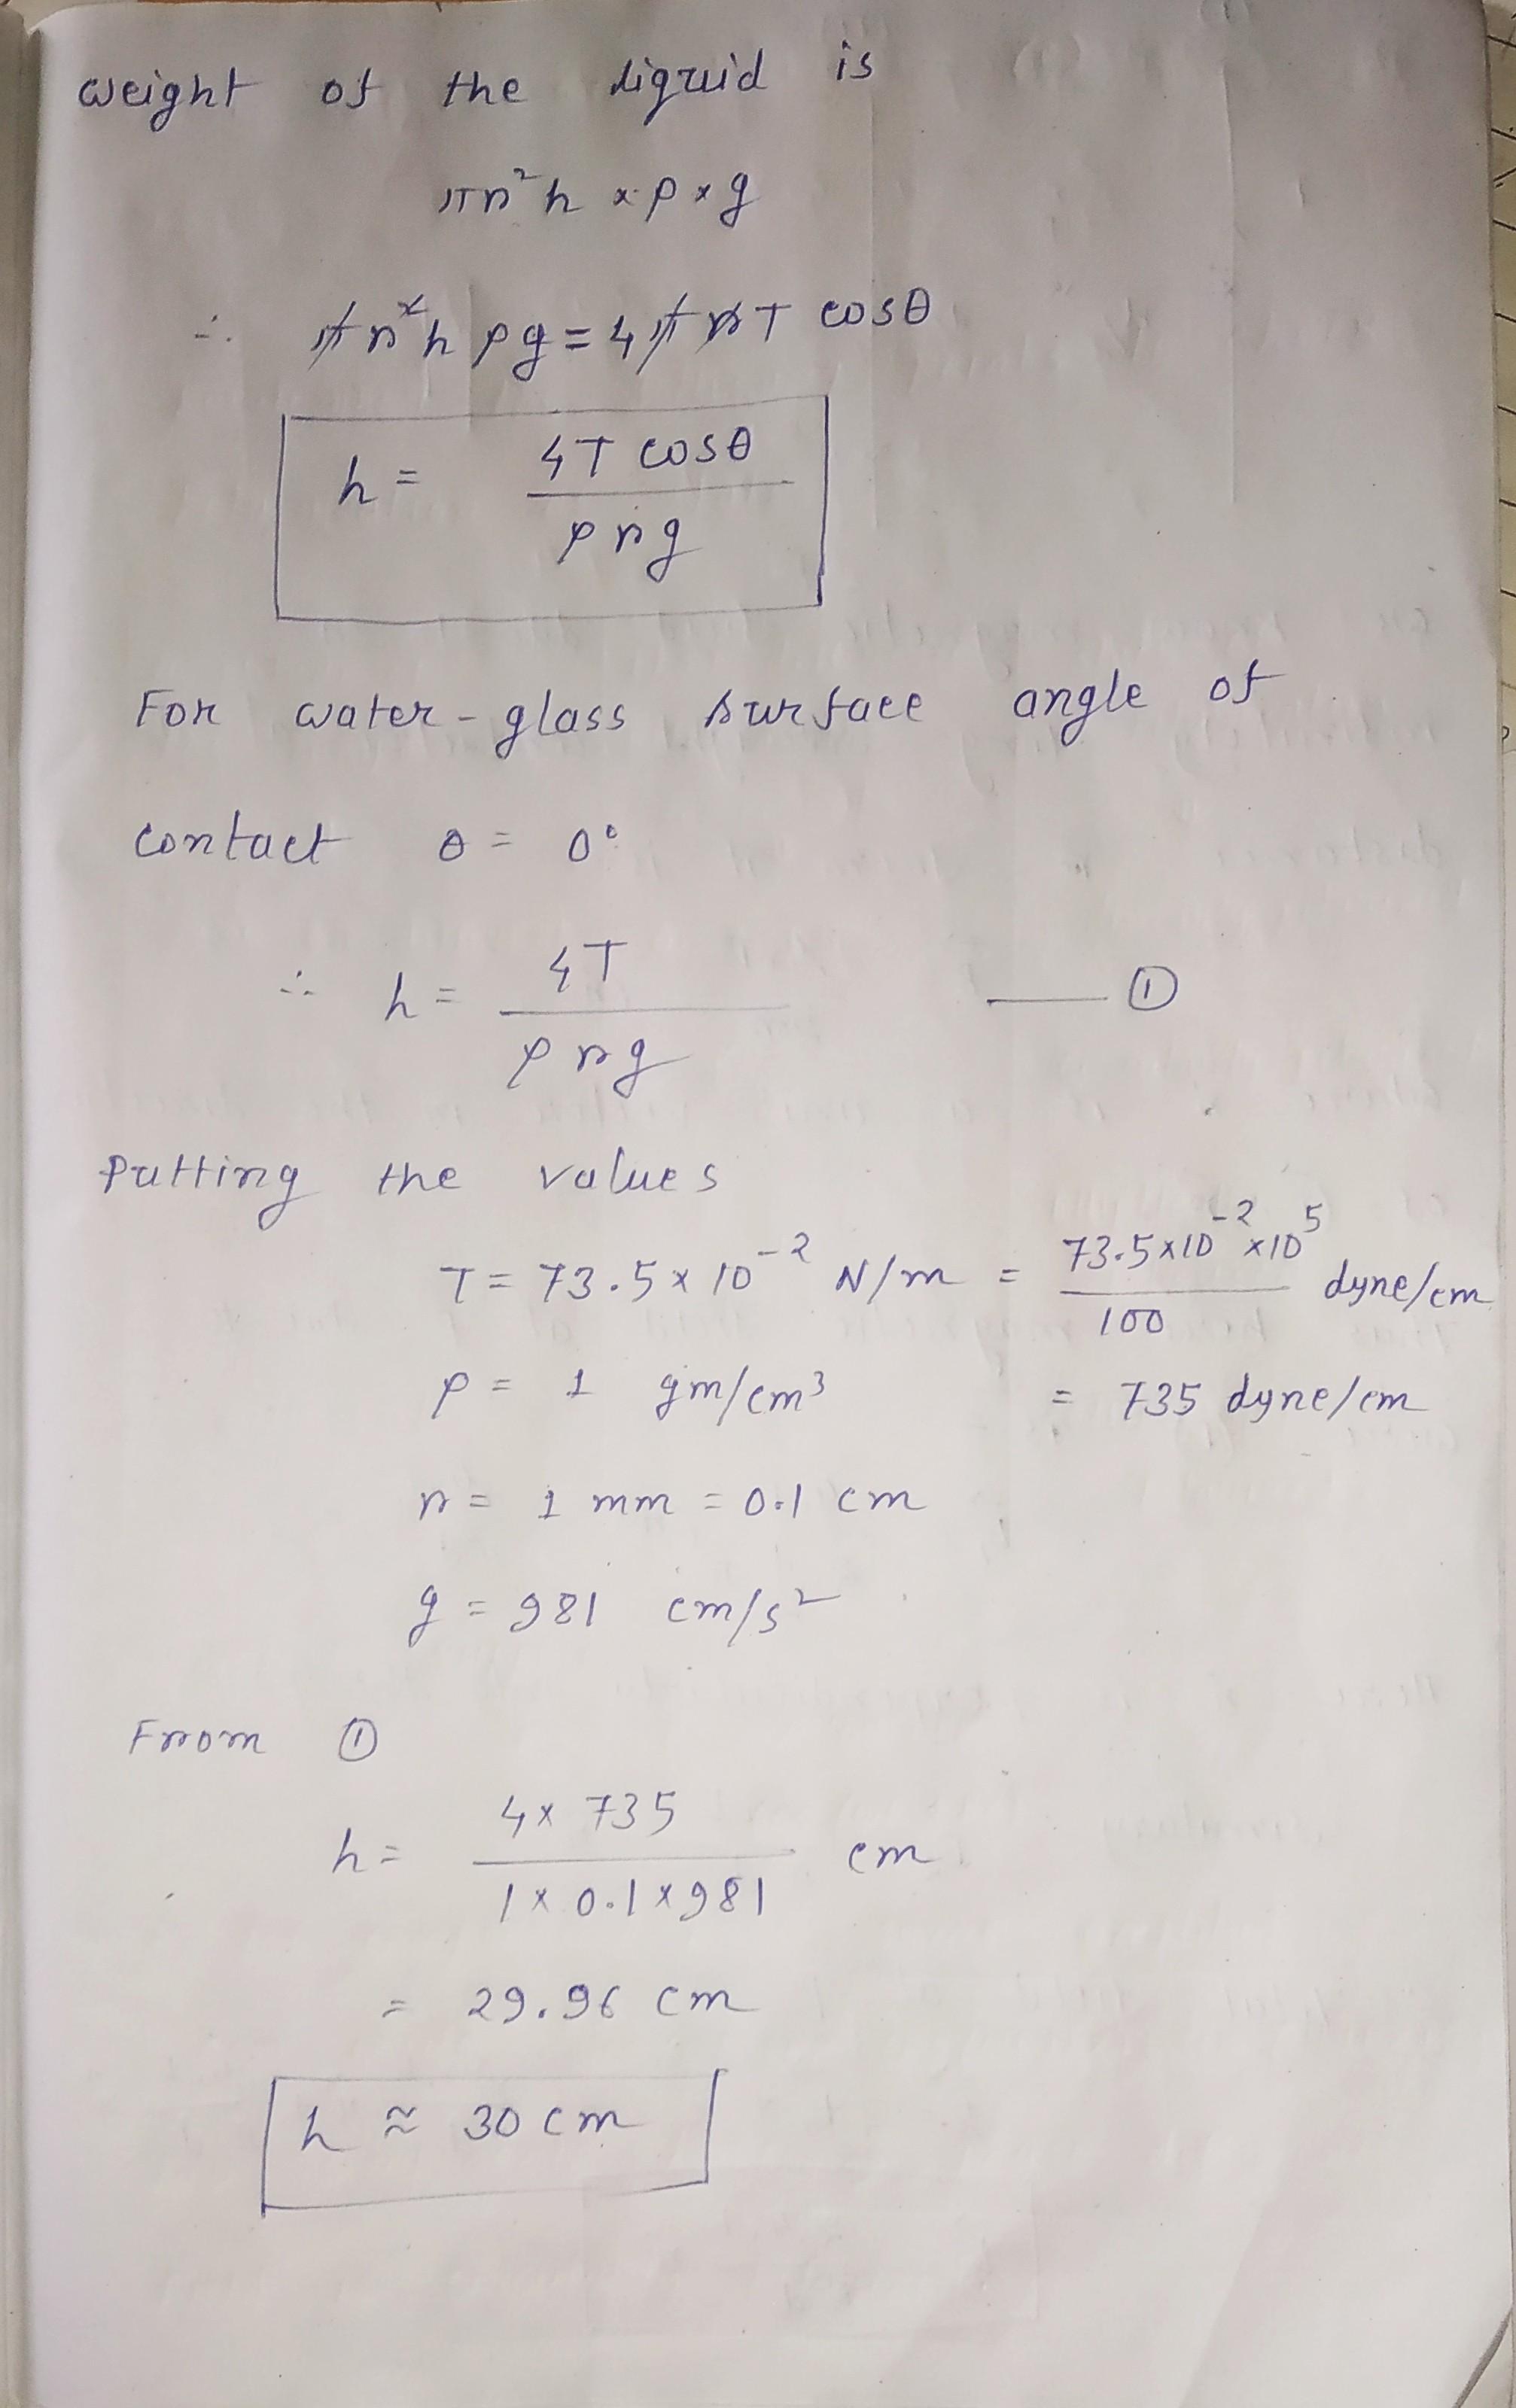 weight of the liquid is
πr²h × ρ × g
∴ πr²h ρg = 4πrT cosθ
h = 4T cosθ / ρrg
For water-glass surface angle of
contact θ = 0°
∴ h = 4T / ρrg —— ①
Putting the values
T = 73.5 × 10⁻² N/m = 73.5×10⁻²×10⁵ / 100 dyne/cm
ρ = 1 gm/cm³ = 735 dyne/cm
r = 1 mm = 0.1 cm
g = 981 cm/s²
From ①
h = 4 × 735 / 1 × 0.1 × 981 cm
= 29.96 cm
h ≈ 30 cm